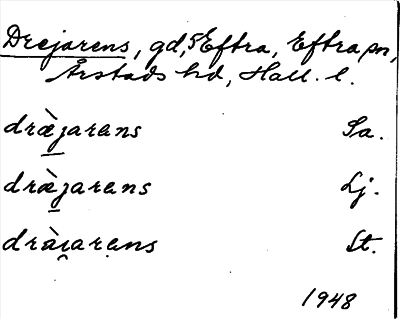 Drejarens, gd, 5 Eftra, Eftra sn,
Årstads hd, Hall. l.
dræ̀jarens Sa.
dræ̀jarens Lj.
dràiarens St.
1948